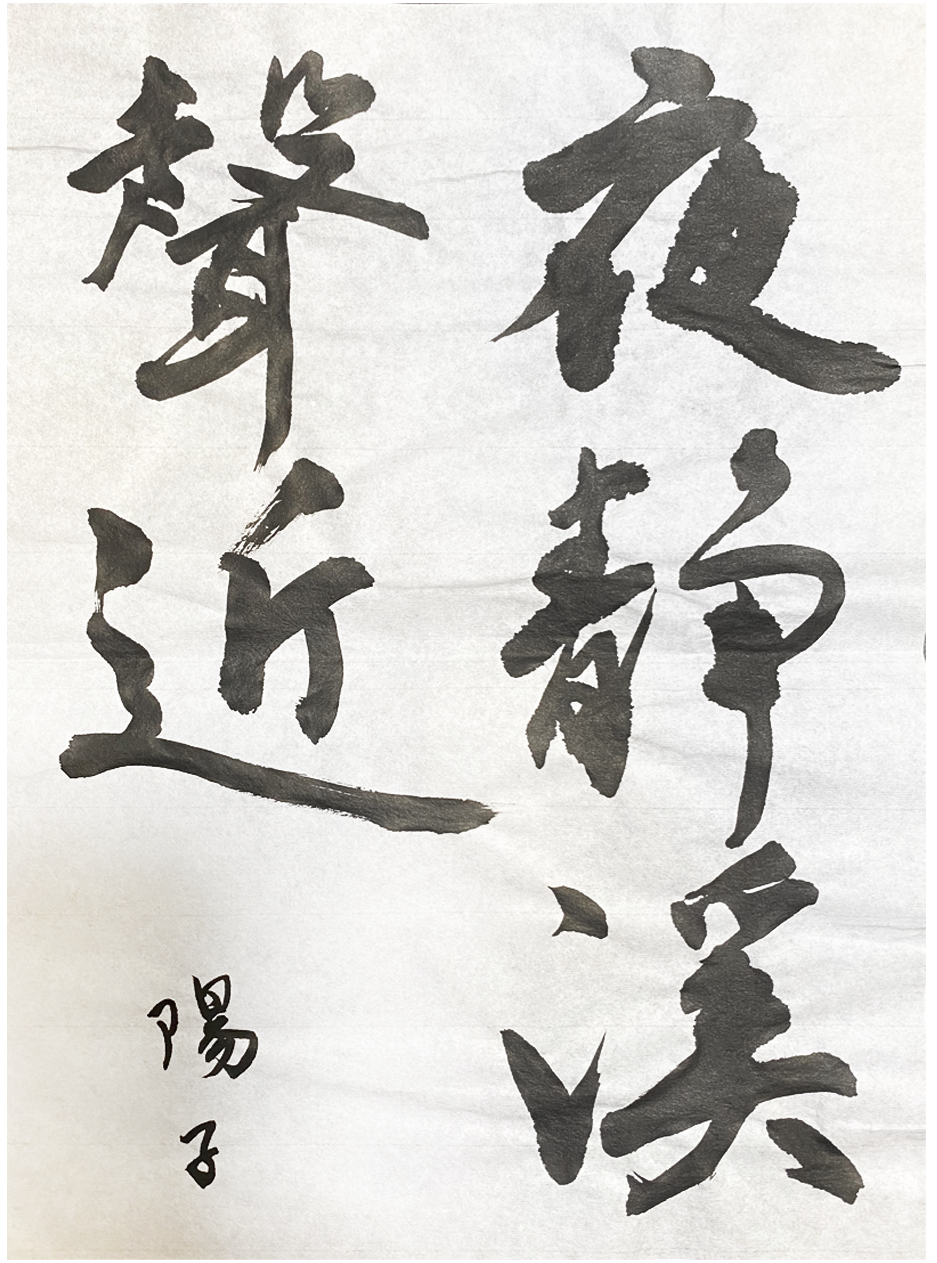 夜静渓
聲近
陽子